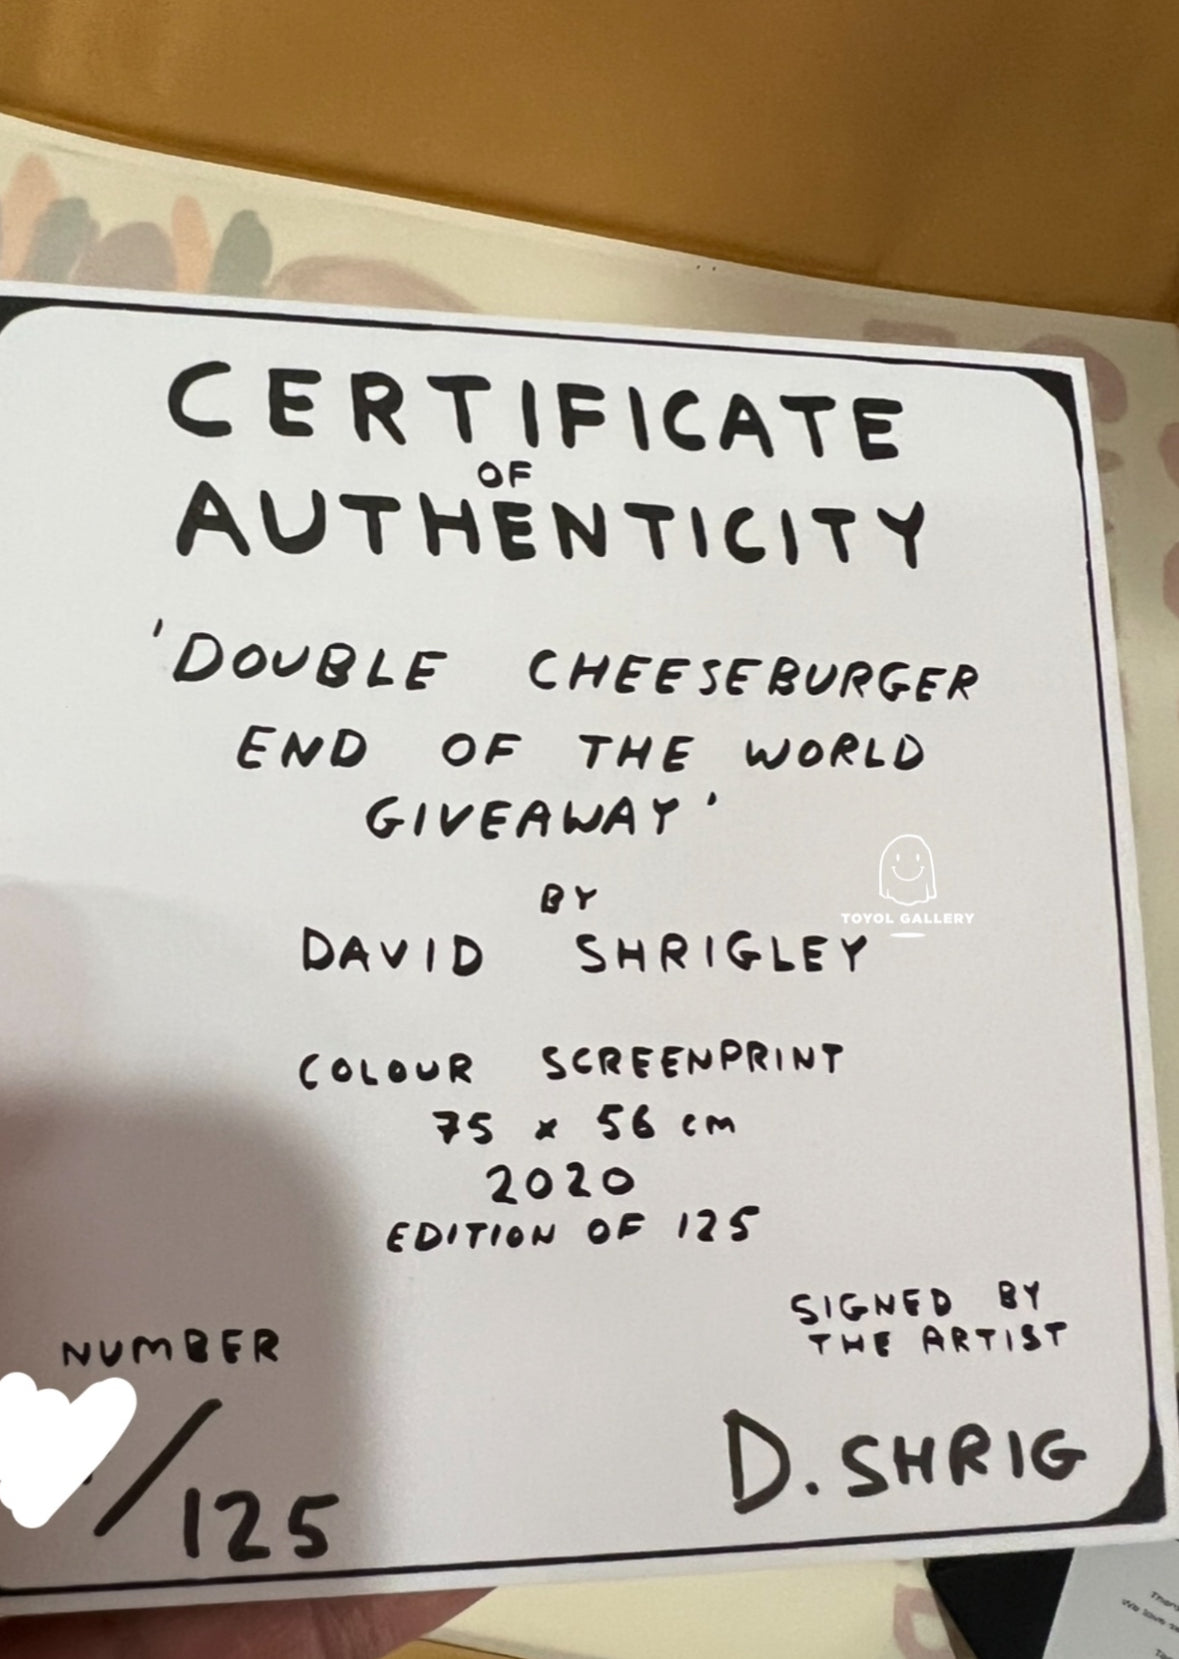 CERTIFICATE
OF
AUTHENTICITY
'DOUBLE CHEESEBURGER
END OF THE WORLD
GIVEAWAY'
BY
TOYOL GALLERY
DAVID SHRIGLEY
COLOUR SCREENPRINT
75 x 56 cm
2020
EDITION OF 125
SIGNED BY
THE ARTIST
NUMBER
/125
D. SHRIG
We love